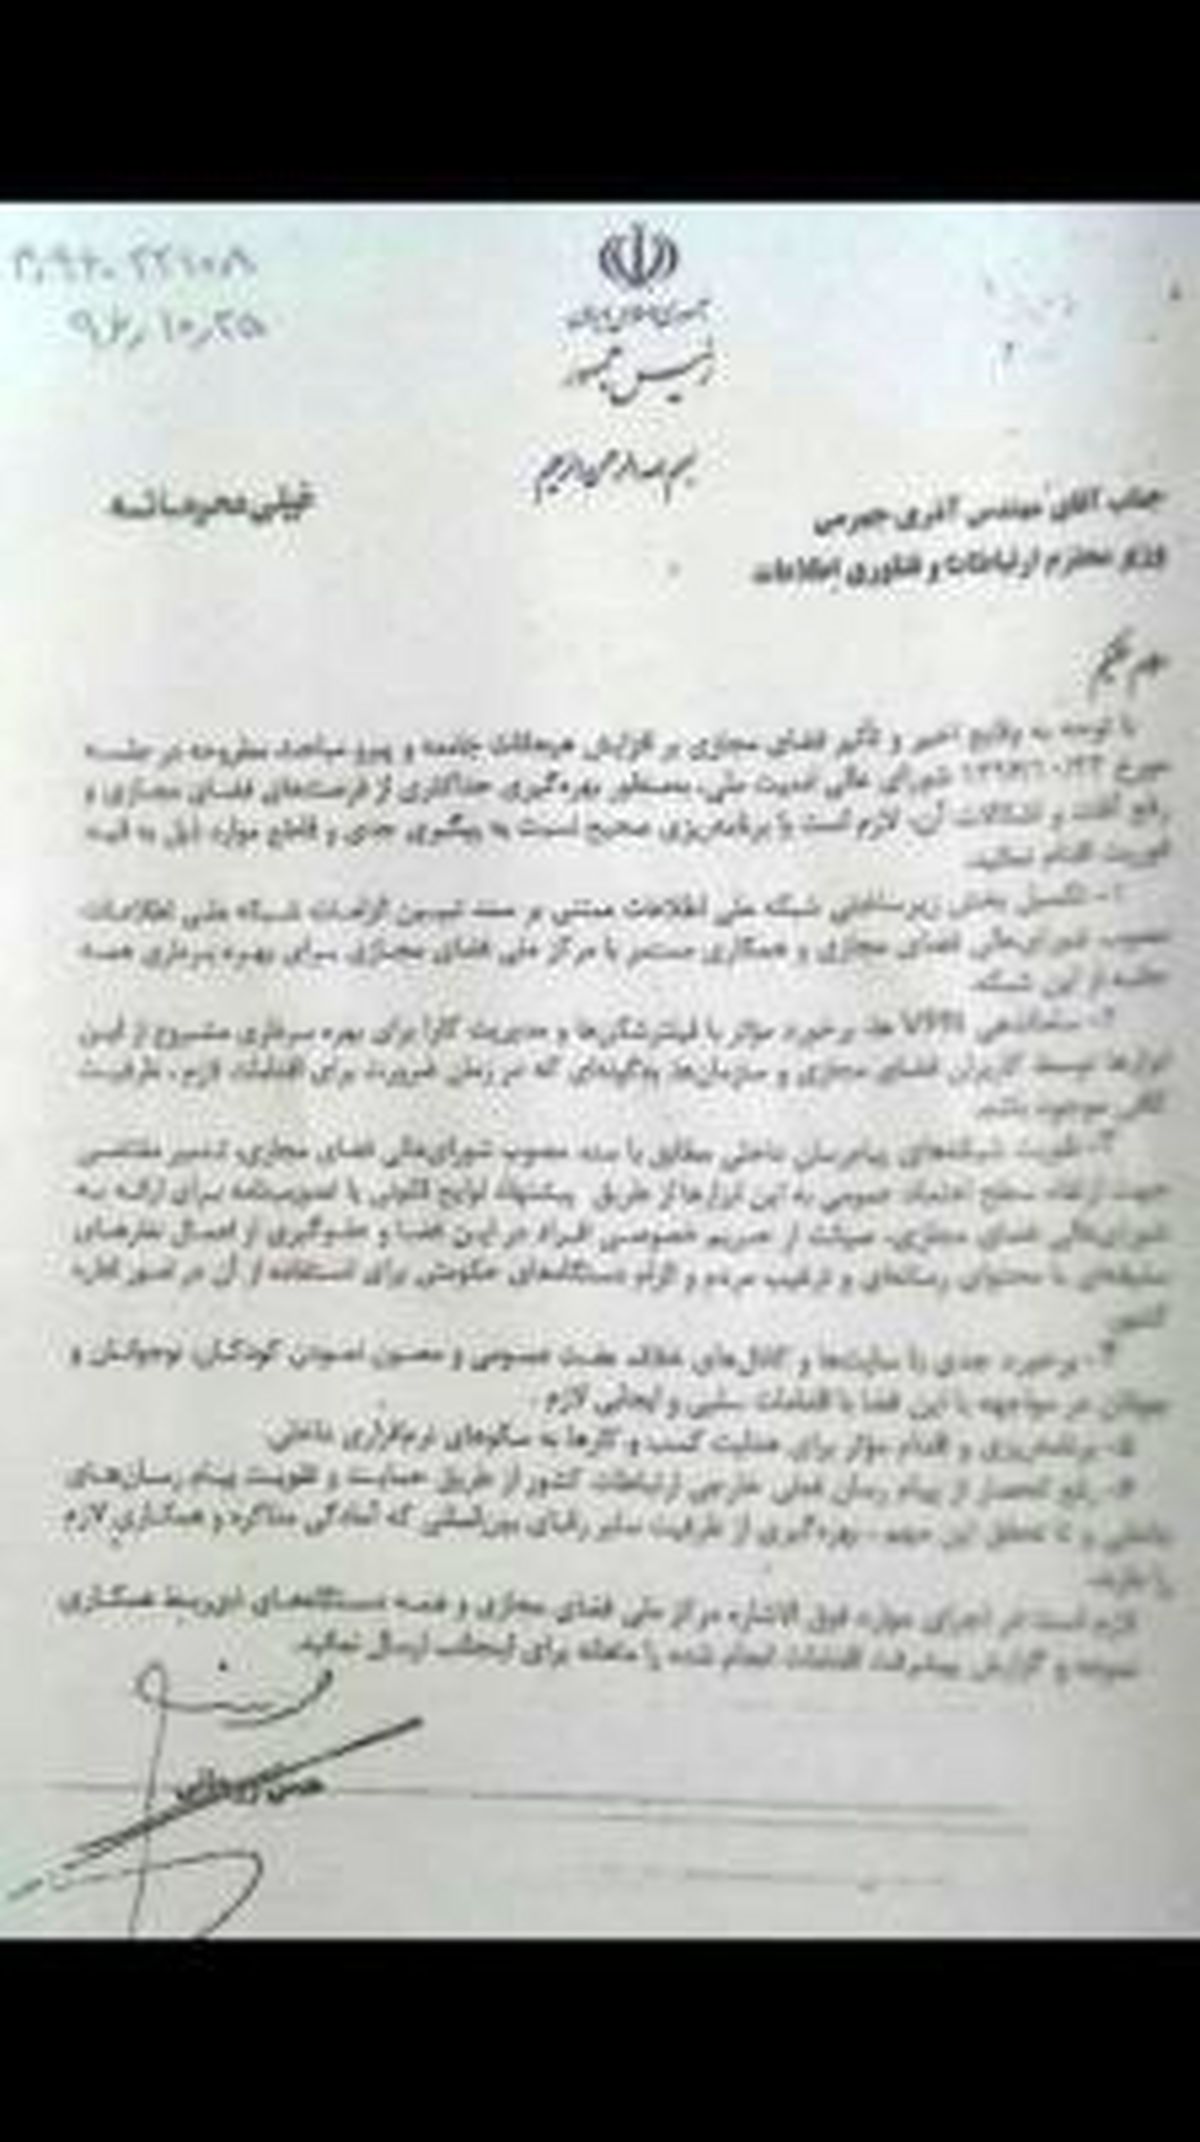 جمهوری اسلامی ایران
رئیس جمهور
بسم الله الرحمن الرحیم
خیلی محرمانه
جناب آقای مهندس آذری جهرمی
وزیر محترم ارتباطات و فناوری اطلاعات
سلام علیکم
با توجه به وقایع اخیر و تأثیر فضای مجازی بر افزایش هیجانات جامعه و پیرو مباحث مطروحه در جلسه
مورخ شورای عالی امنیت ملی، به‌منظور بهره‌گیری حداکثری از فرصت‌های فضای مجازی و
رفع آفات و اشکالات آن، لازم است با برنامه‌ریزی صحیح نسبت به پیگیری جدی و قاطع موارد ذیل به قید
فوریت اقدام نمائید.
۱- تکمیل بخش زیرساختی شبکه ملی اطلاعات مبتنی بر سند تبیین الزامات شبکه ملی اطلاعات
مصوب شورای‌عالی فضای مجازی و همکاری مستمر با مرکز ملی فضای مجازی برای بهره برداری همه
جانبه از این شبکه.
۲- ساماندهی VPN ها، برخورد مؤثر با فیلترشکن‌ها و مدیریت کارآ برای بهره برداری مشروع از این
ابزارها توسط کاربران فضای مجازی و سازمان‌ها، به‌گونه‌ای که در زمان ضرورت برای اقدامات لازم، ظرفیت
کافی موجود باشد.
۳- تقویت شبکه‌های پیام‌رسان داخلی مطابق با سند مصوب شورای‌عالی فضای مجازی، تدبیر مقتضی
جهت ارتقاء سطح اعتماد عمومی به این ابزارها از طریق پیشنهاد لوایح قانونی یا تصویب‌نامه برای ارائه به
شورای‌عالی فضای مجازی، صیانت از حریم خصوصی افراد در این فضا و جلوگیری از اعمال نظرهای
سلیقه‌ای با محتوای رسانه‌ای و ترغیب مردم و الزام دستگاه‌های حکومتی برای استفاده از آن در امور اداره
کشور.
۴- برخورد جدی با سایت‌ها و کانال‌های خلاف عفت عمومی و مصون نمودن کودکان، نوجوانان و
جوانان در مواجهه با این فضا با اقدامات سلبی و ایجابی لازم.
۵- برنامه‌ریزی و اقدام مؤثر برای هدایت کسب و کارها به سکوهای نرم‌افزاری داخلی.
۶- رفع انحصار از پیام رسان فعلی خارجی ارتباطات کشور از طریق حمایت و تقویت پیام رسان‌های
داخلی و تا تحقق این مهم، بهره‌گیری از ظرفیت سایر رقبای بین‌المللی که آمادگی مذاکره و همکاری لازم
را دارند.
لازم است در اجرای موارد فوق الاشاره مرکز ملی فضای مجازی و همه دستگاه‌های ذی‌ربط همکاری
نموده و گزارش پیشرفت اقدامات انجام شده را ماهانه برای اینجانب ارسال نمائید.
حسن روحانی